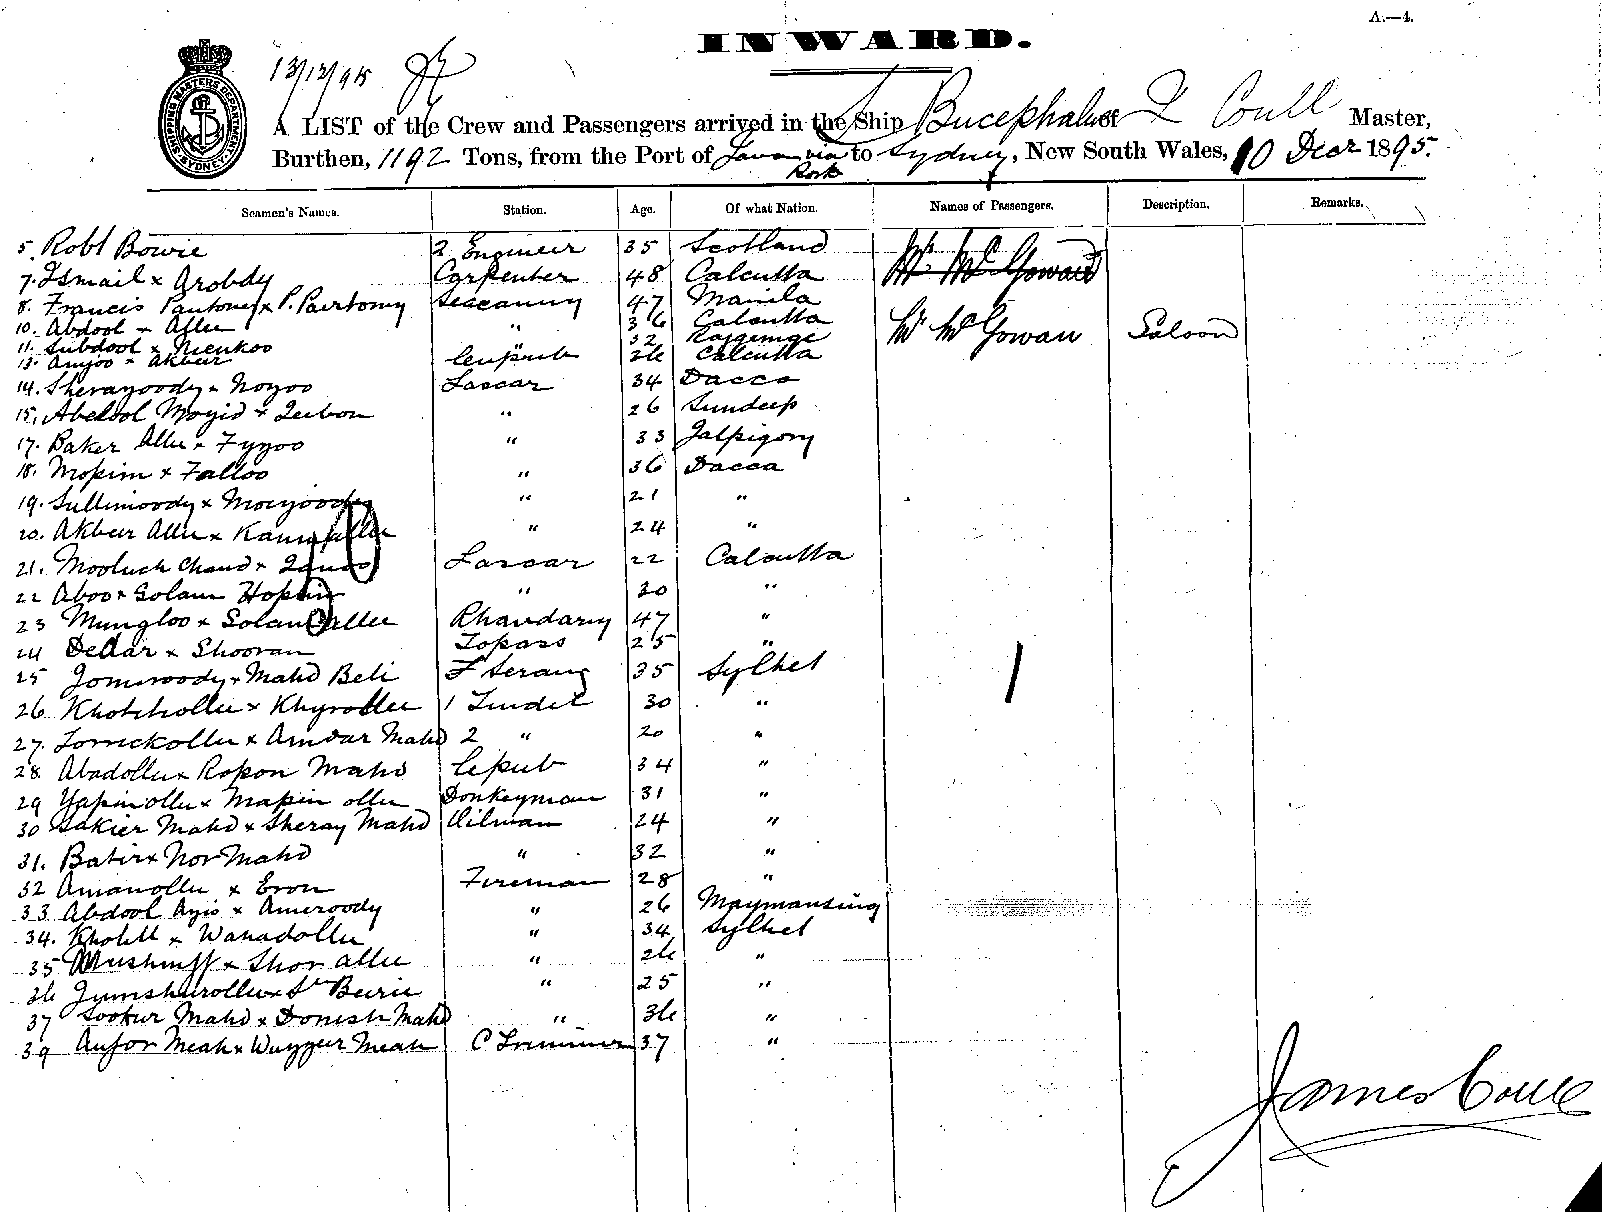 A.—4.
INWARD.
13/12/95
SHIPPING MASTERS DEPARTMENT SYDNEY
A LIST of the Crew and Passengers arrived in the Ship Bucephalus of J Coull Master,
Burthen, 1192 Tons, from the Port of Java via Rock to Sydney, New South Wales, 10 Decr 1895.
Seamen's Names. Station. Age. Of what Nation. Names of Passengers. Description. Remarks.
5. Robt Bowie 2 Engineer 35 Scotland Mr McGowan
7. Ismail x Arobdy Carpenter 48 Calcutta
8. Francis Pantoney x P. Partomy Seacunny 47 Manila
10. Abdool x Allee " 36 Calcutta Mr McGowan Saloon
11. Subdool x Nienkoo 32
13. Anjoo x Akbur 26 Calcutta
14. Sheragoody x Noyoo Lascar 34 Dacca
15. Abdool Moyid x Zeebon " 26 Sundeep
17. Baker Allee x Fyzoo " 33 Jalpigory
18. Mopim x Falloo " 36 Dacca
19. Sullimoody x Moozoody " 21 "
20. Akbur Allee x " 24 "
21. Mooluck Chand x Lascar 22 Calcutta
22 Aboo x Golam Hossin " 20 "
23 Mungloo x Golam Allee Bhandary 47 "
24 Dellar x Shooran Topass 25 "
25 Jomiroody x Mahd Beli F Serang 35 Sylhet
26 x Khyrollee 1 Tindel 30 "
27. Torrickollee x Amdar Mahd 2 " 20 "
28 Abadollee x Ropon Mahd 34 "
29 Yapinollee x Mapin ollee Donkeyman 31 "
30 Sakier Mahd x Sheray Mahd Oilman 24 "
31. Batir x Nor Mahd " 32 "
32 Amanollee x Eron Fireman 28 "
33 Abdool Azis x Ameroody " 26 Maymansing
34. Kholill x Wahadollee " 34 Sylhet
35 Mushruff x Shor allee " 26 "
36 Jumshurollee x " 25 "
37 Sookur Mahd x Donish Mahd " 36 "
39 Aufor Meah x Wuzzeer Meah C Trimmer 37 "
James Coull